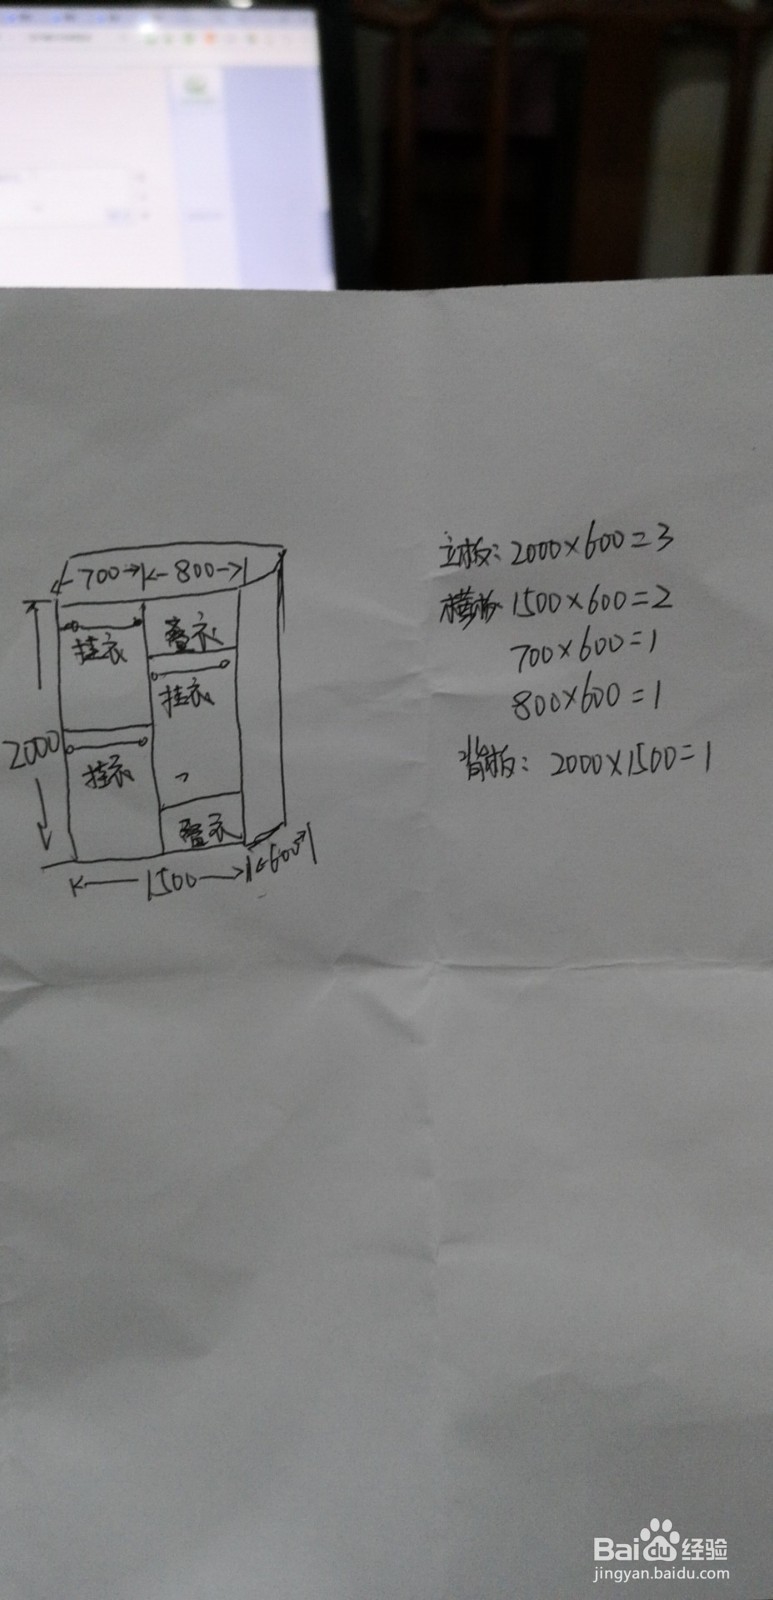 700
800
挂衣
叠衣
挂衣
2000
挂衣
叠衣
1500
600
立板：2000×600=3
横板 1500×600=2
700×600=1
800×600=1
背板：2000×1500=1
Baidu经验
jingyan.baidu.com